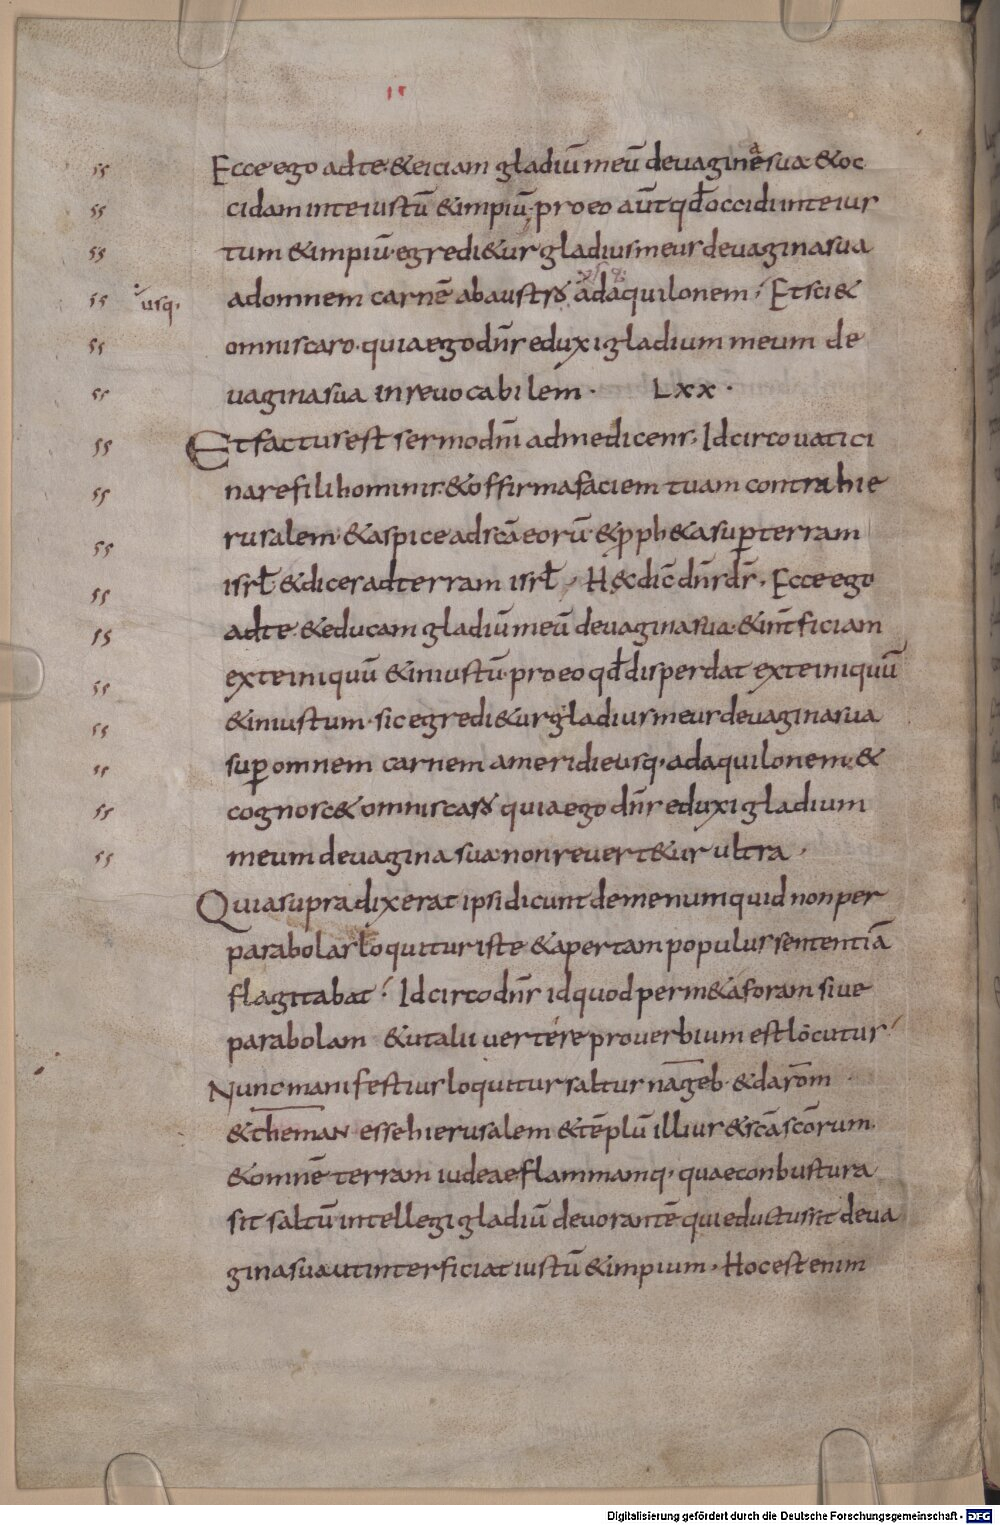 Ecce ego ad te & eiciam gladiū meū de vagina sua & oc
cidam in te iustū & impiū· pro eo aūt qđ occidi in te ius
tum & impiū· egredi&ur gladius meus de vagina sua
usq· ad omnem carnē ab austro ad aquilonem· Et sci&
omnis caro· quia ego dn̄s eduxi gladium meum de
vagina sua inrevocabilem· Lxx·
Et factus est sermo dn̄i ad me dicens· Idcirco vatici
nare fili hominis· & offirma faciem tuam contra hie
rusalem· & aspice ad scā eorū· & pph&a sup terram
isrł & dices ad terram isrł· H&c dic̄ dn̄s ds̄· Ecce ego
ad te & educam gladiū meū de vagina sua· & int̄ficiam
ex te iniquū & iniustū· pro eo qđ disperdat ex te iniquū
& iniustum· sic egredi&ur gladius meus de vagina sua
sup omnem carnem a meridie usq· ad aquilonem· &
cognosc& omnis caro quia ego dn̄s eduxi gladium
meum de vagina sua· non revert&ur ultra·
Quia supra dixerat ipsi dicunt de me numquid non per
parabolas loquitur iste & apertam populus sententiā
flagitabat· Idcirco dn̄s id quod per m&aforam sive
parabolam & ut alii vertere proverbium est locutus·
Nunc manifestius loquitur saltus nāgeb· & darōm
& theman esse hierusalem & tēplū illius & scā scōrum
& omnē terram iudeae flammamq· quae conbustura
sit saltū intellegi gladiū devorantē qui eductus sit de va
gina sua ut interficiat iustū & impium· Hoc est enim
Digitalisierung gefördert durch die Deutsche Forschungsgemeinschaft - DFG